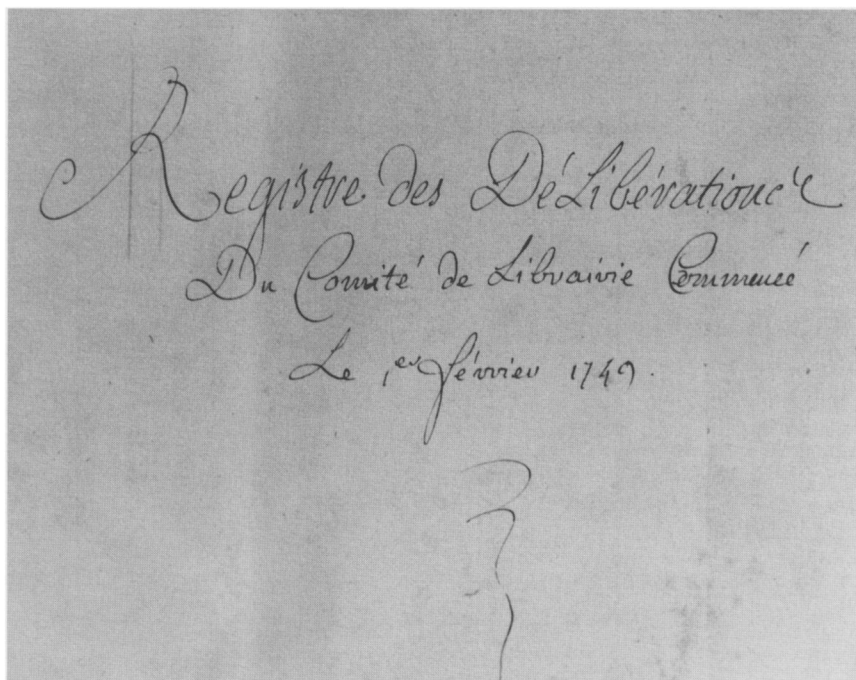 Registre des DéLibérations
Du Comité de Librairie Commencé
Le 1er février 1749.